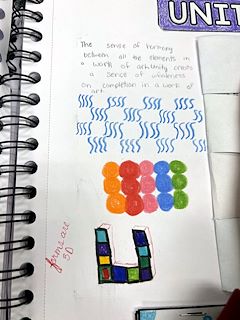 UNIT
The sense of harmony
between all the elements in
a work of art, unity creats
a sense of wholeness
on completion in a work of
art.
forms are
3D
U